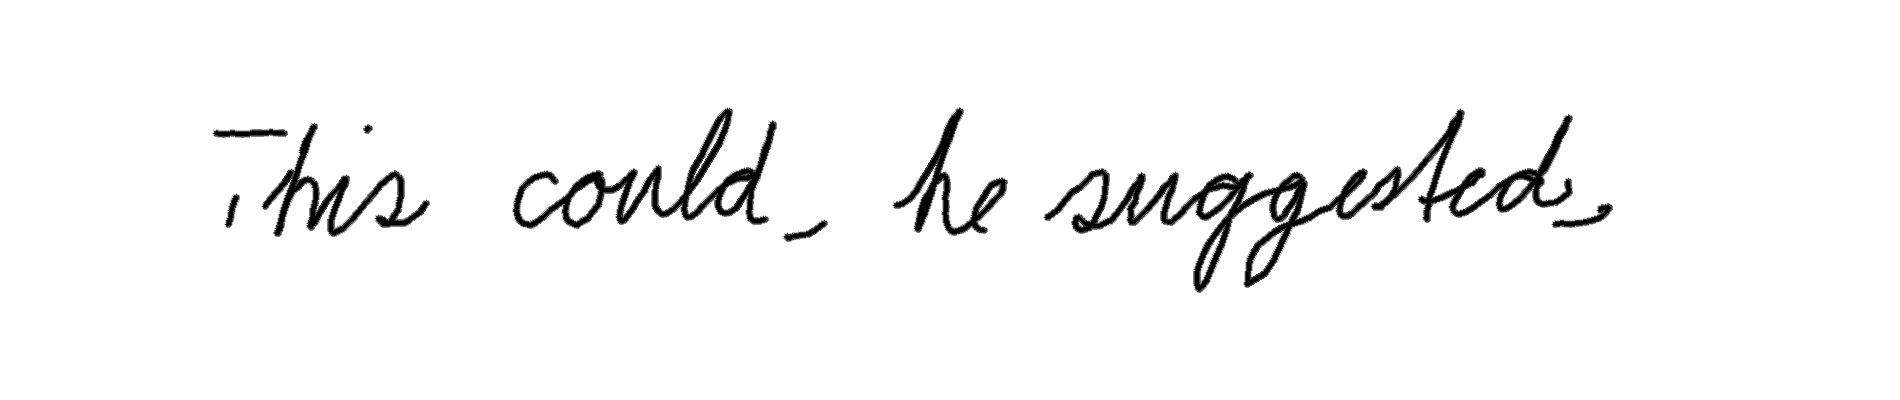 This could, he suggested,